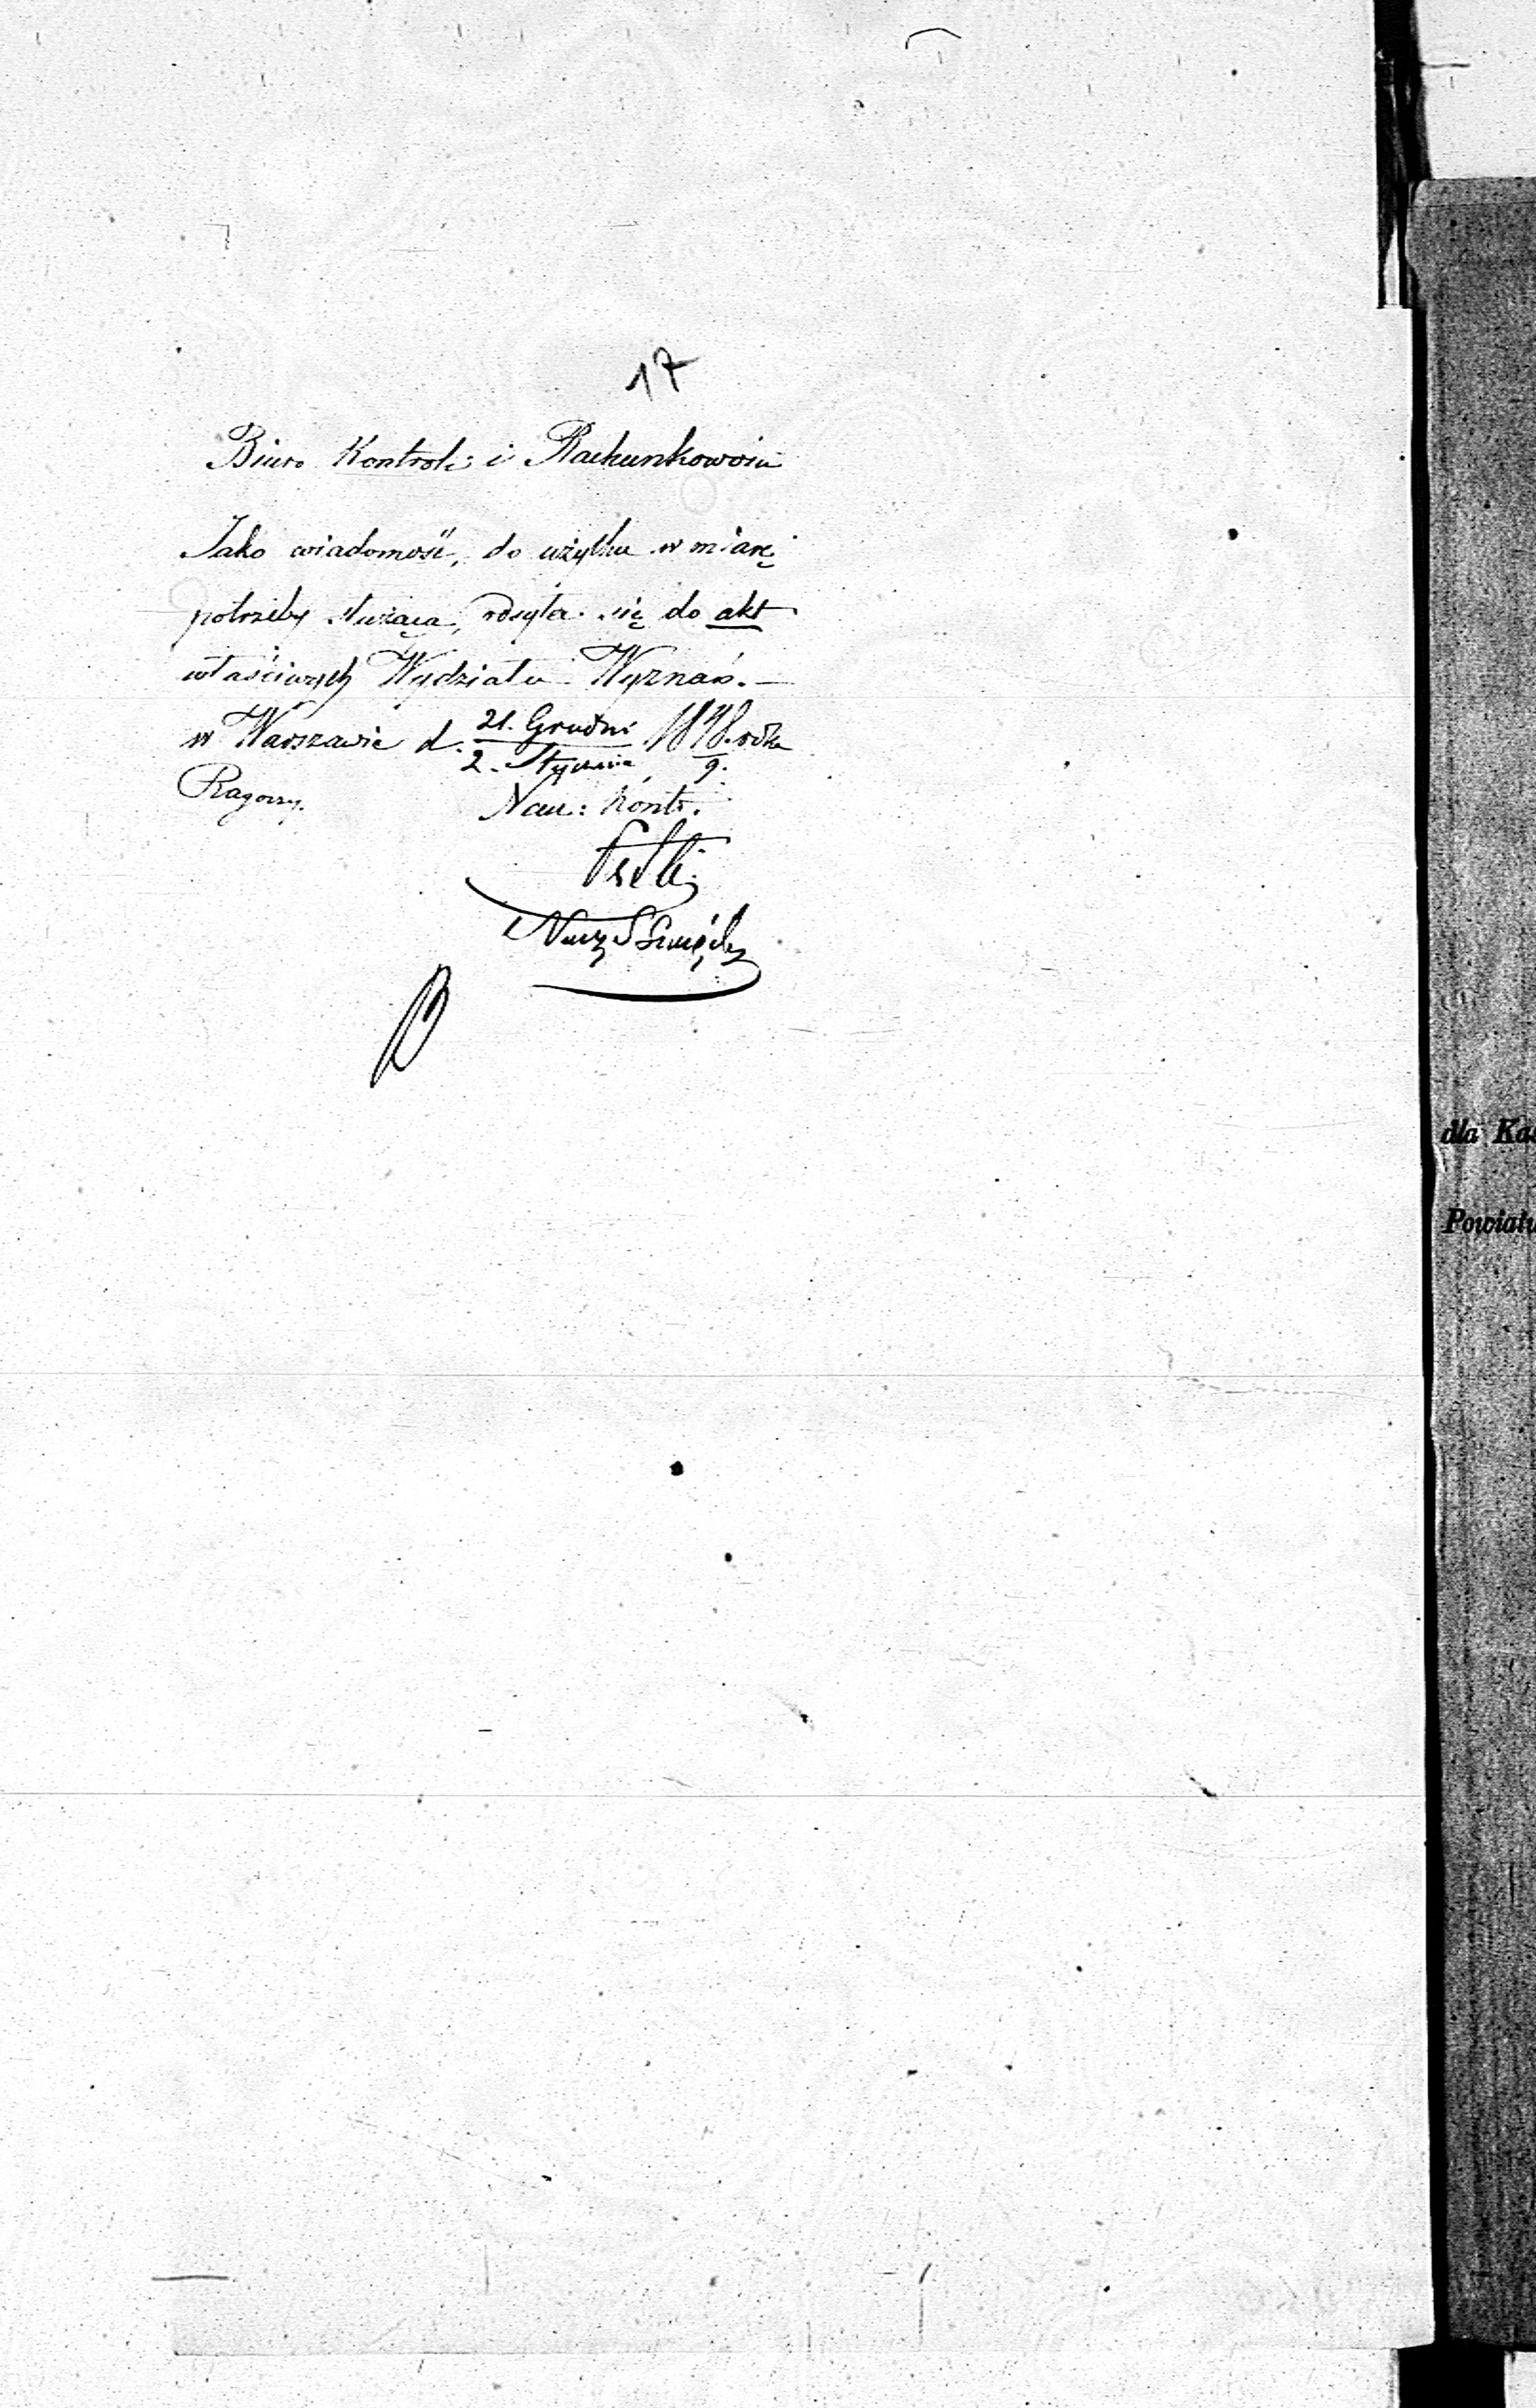 17
Biuro Kontroli i Rachunkowości
Jako wiadomość, do użytku w miarę
potrzeby służąca, odsyła się do akt
właściwych Wydziału Wyznań. —
w Warszawie d. 21. Grudni / 2. Stycznia 1848/9. roku
Nacz: Kontr.
dla Kas
Powiatu